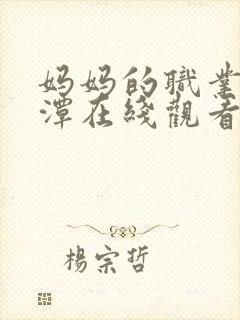 媽媽的職業
潭在綫觀看
楊宗哲